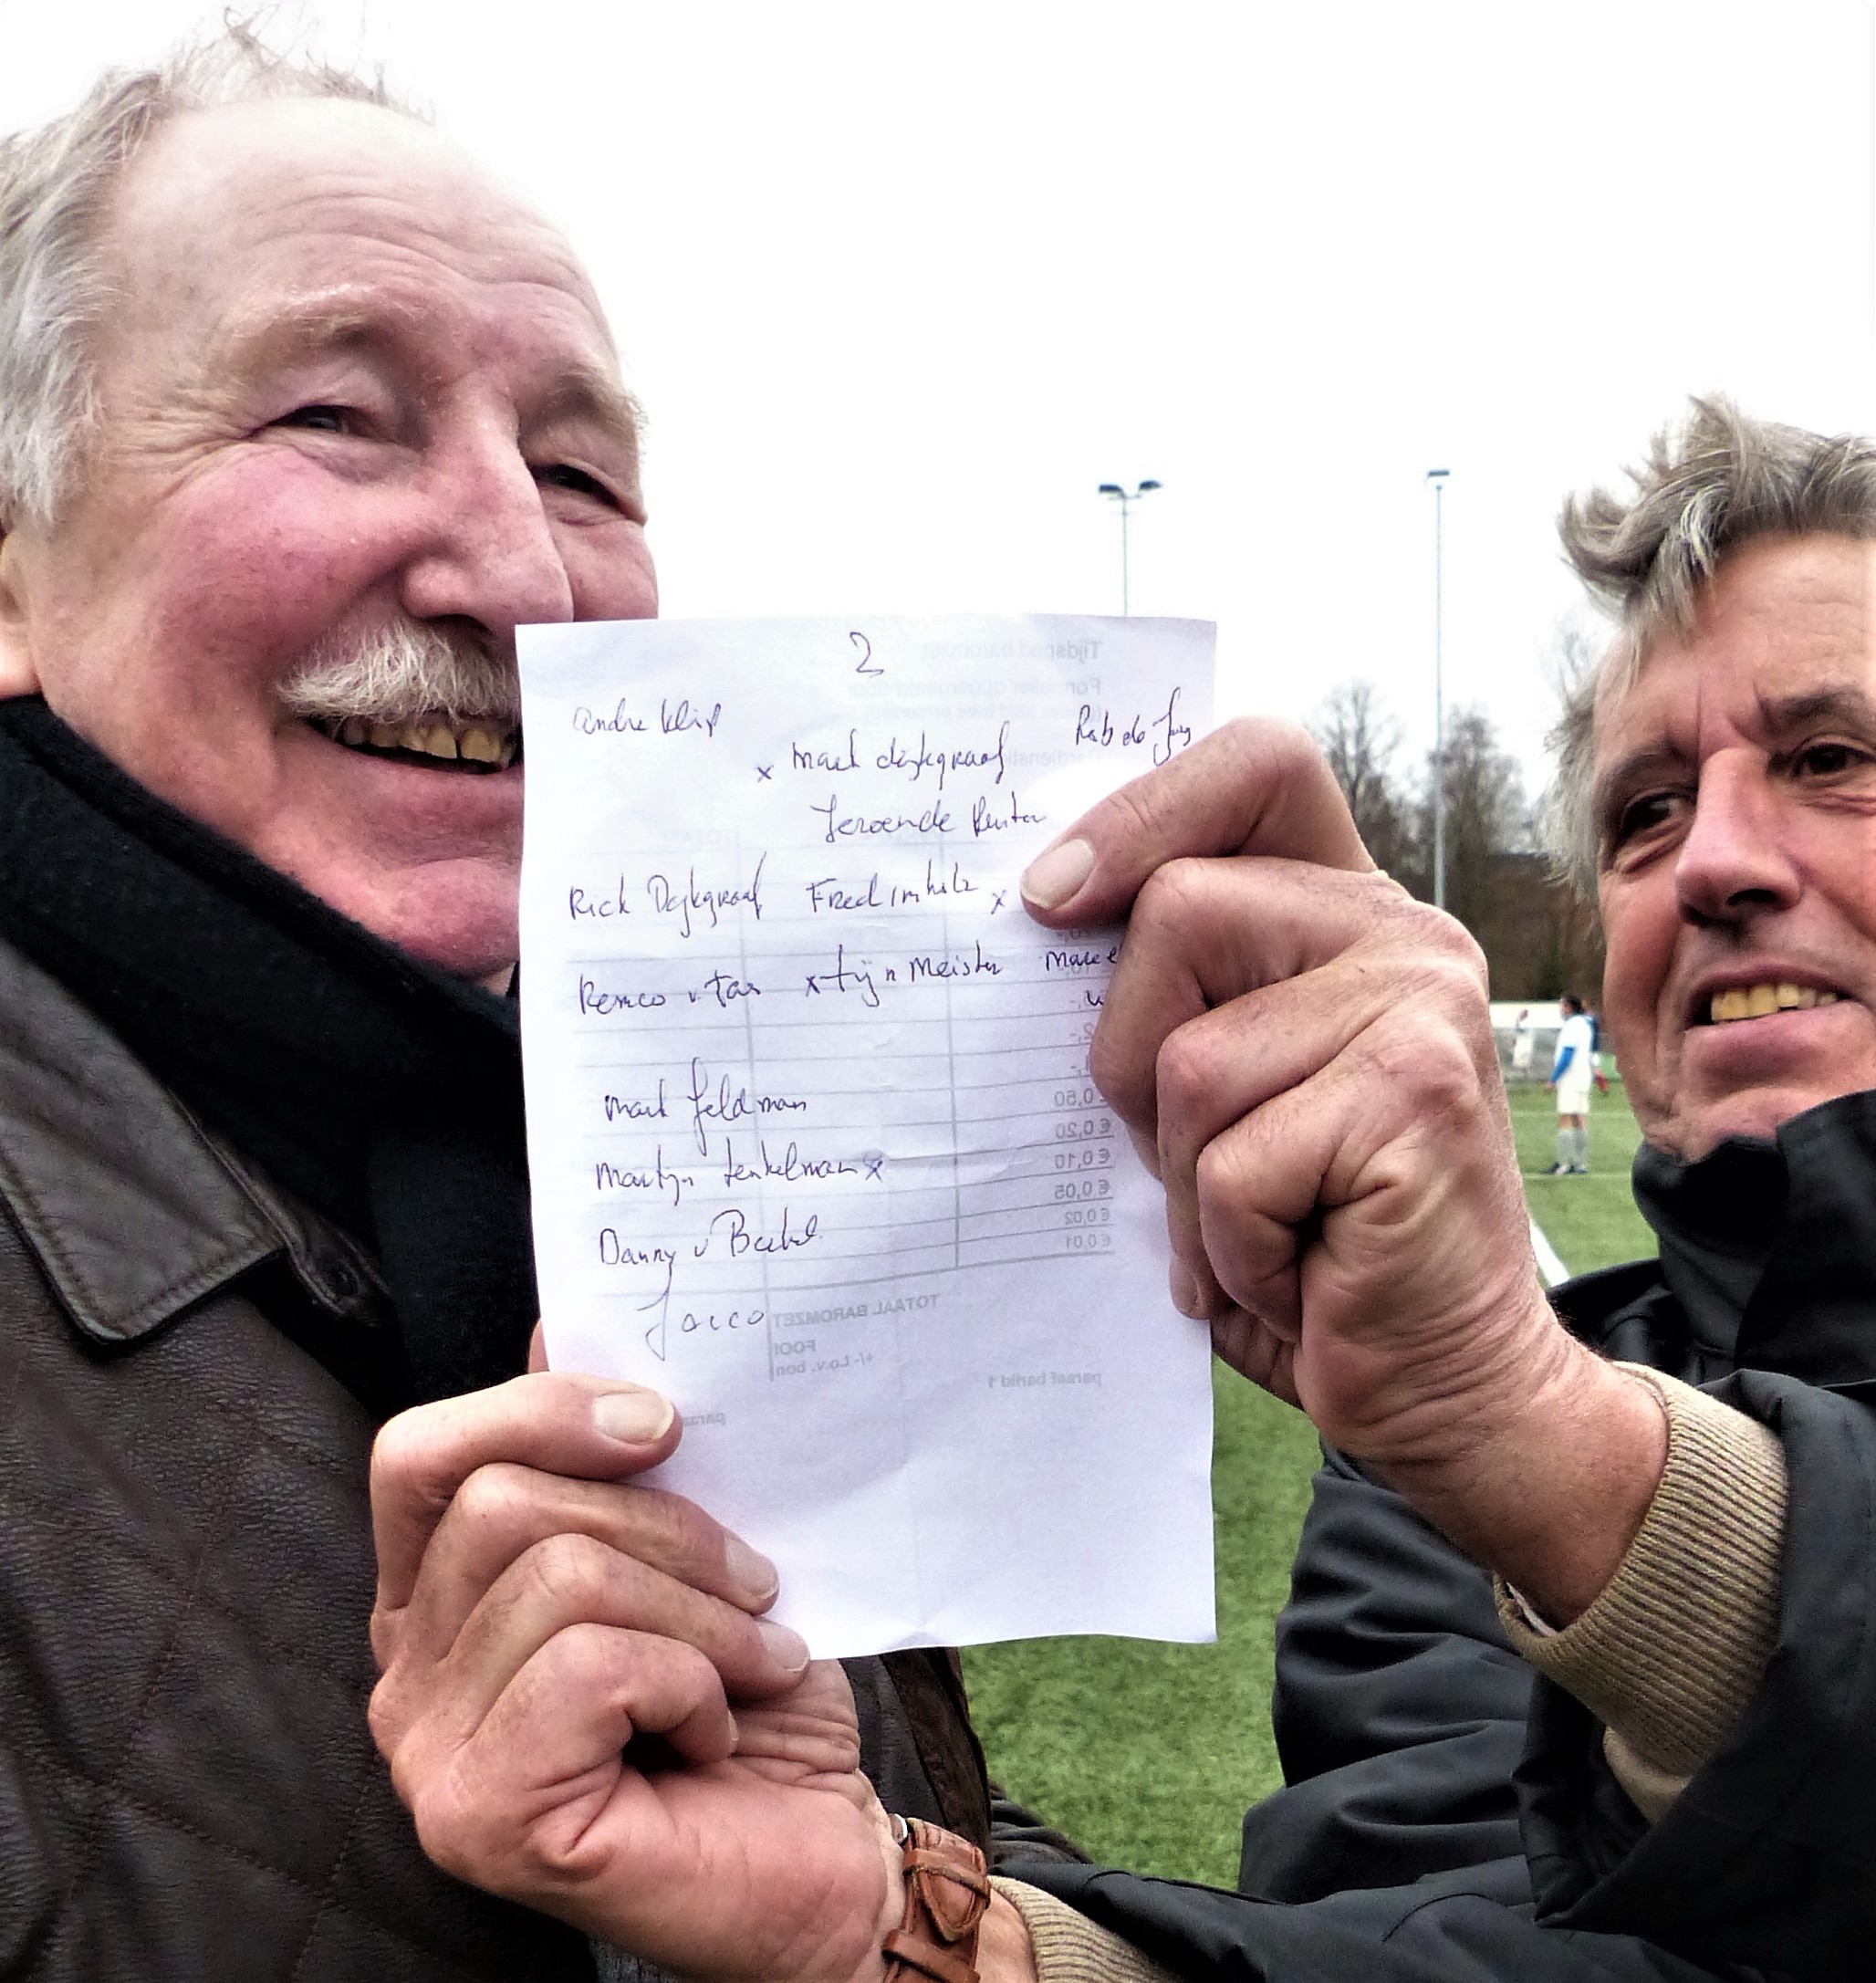 2
Andre Klip
Rob de Jong
x Mark dijkgraaf
Jeroen de Ruiter
Rick Dijkgraaf Fred imholz x
Remco v Tar x tijn Meister Marce
Mark feldman
Martijn tenkelman x
Danny v Beekel
Jacco
€ 0,50
€ 0,20
€ 0,10
€ 0,05
€ 0,02
€ 0,01
TOTAAL BAROMZET
FOOI
+/- t.o.v. bon
paraaf barlid 1